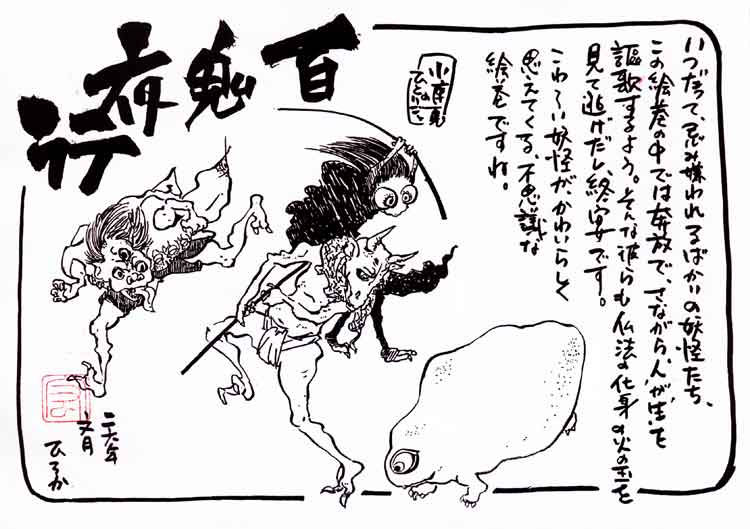 百鬼夜行
いつだって、忌み嫌われるばかりの妖怪たち、
この絵巻の中では奔放で、さながら、人が生を
謳歌するよう。そんな彼らも仏法の化身の火の玉を
見て逃げだし、終宴です。
こわ〜い妖怪が、かわいらしく
思えてくる、不思議な
絵巻ですね。
のひとりごと
二六年
文月
ひろか